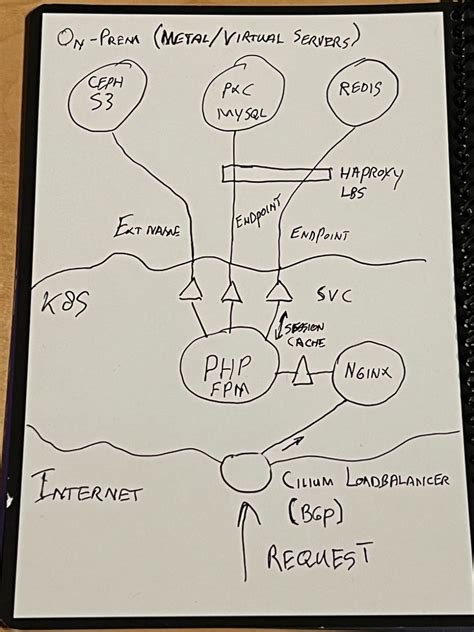 ON-PREM (METAL/VIRTUAL SERVERS)
CEPH
S3
PXC
MYSQL
REDIS
HAPROXY
LBS
EXT NAME
ENDPOINT
ENDPOINT
K8S
SVC
SESSION
CACHE
PHP
FPM
NGINX
INTERNET
CILIUM LOADBALANCER
(BGP)
REQUEST